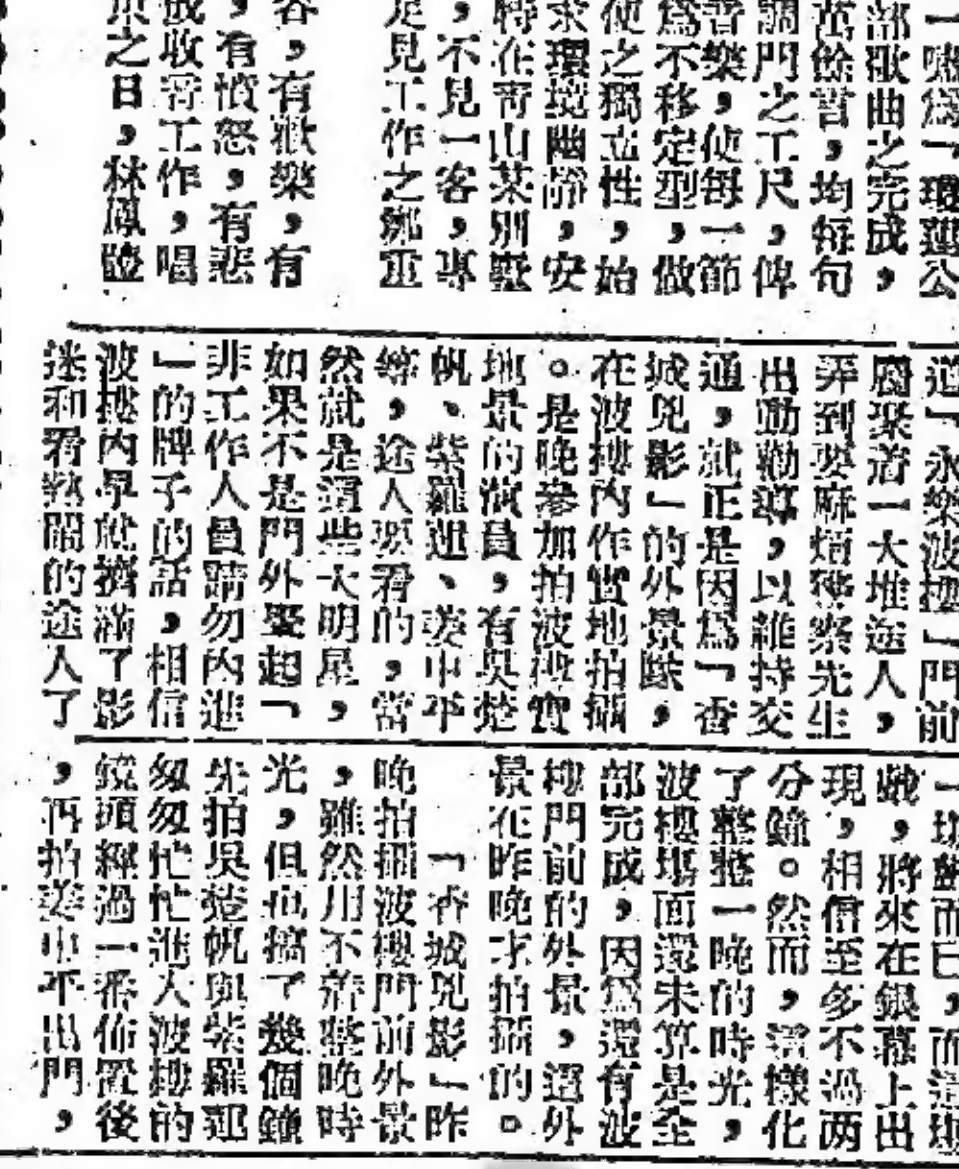 一嘯爲「環蓮公
部歌曲之完成，
萬餘言，均每句
調門之工尺，俾
音樂，使每一節
爲不移定型，做
使之獨立性，始
求環境幽靜，安
特在靑山某別墅
，不見一客，專
足見工作之鄭重
容，有歡樂，有
，有憤怒，有悲
成收音工作，唱
京之日，林鳳
道「永樂波樓」門前
圍聚着一大堆途人，
弄到要麻煩警察先生
出動勸導，以維持交
通，就正是因爲「香
城兇影」的外景隊，
在波樓內作實地拍攝
。是晚參加拍波樓實
地景的演員，有吳楚
帆、紫羅蓮、姜中平
等，途人要看的，當
然就是這些大明星，
如果不是門外竪起「
非工作人員請勿內進
」的牌子的話，相信
波樓內早就擠滿了影
迷和看熱鬧的途人了
而已，而這
戲，將來在銀幕上出
現，相信至多不過两
分鐘。然而，這樣化
了整整一晚的時光，
波樓塲面還未算是全
部完成，因爲還有波
樓門前的外景，這外
景在昨晚才拍攝的。
「香城兇影」昨
晚拍攝波樓門前外景
，雖然用不着整晚時
光，但也搞了幾個鐘
先拍吳楚帆與紫羅蓮
匆匆忙忙進入波樓的
鏡頭經過一番佈置後
，再拍姜中平出門，